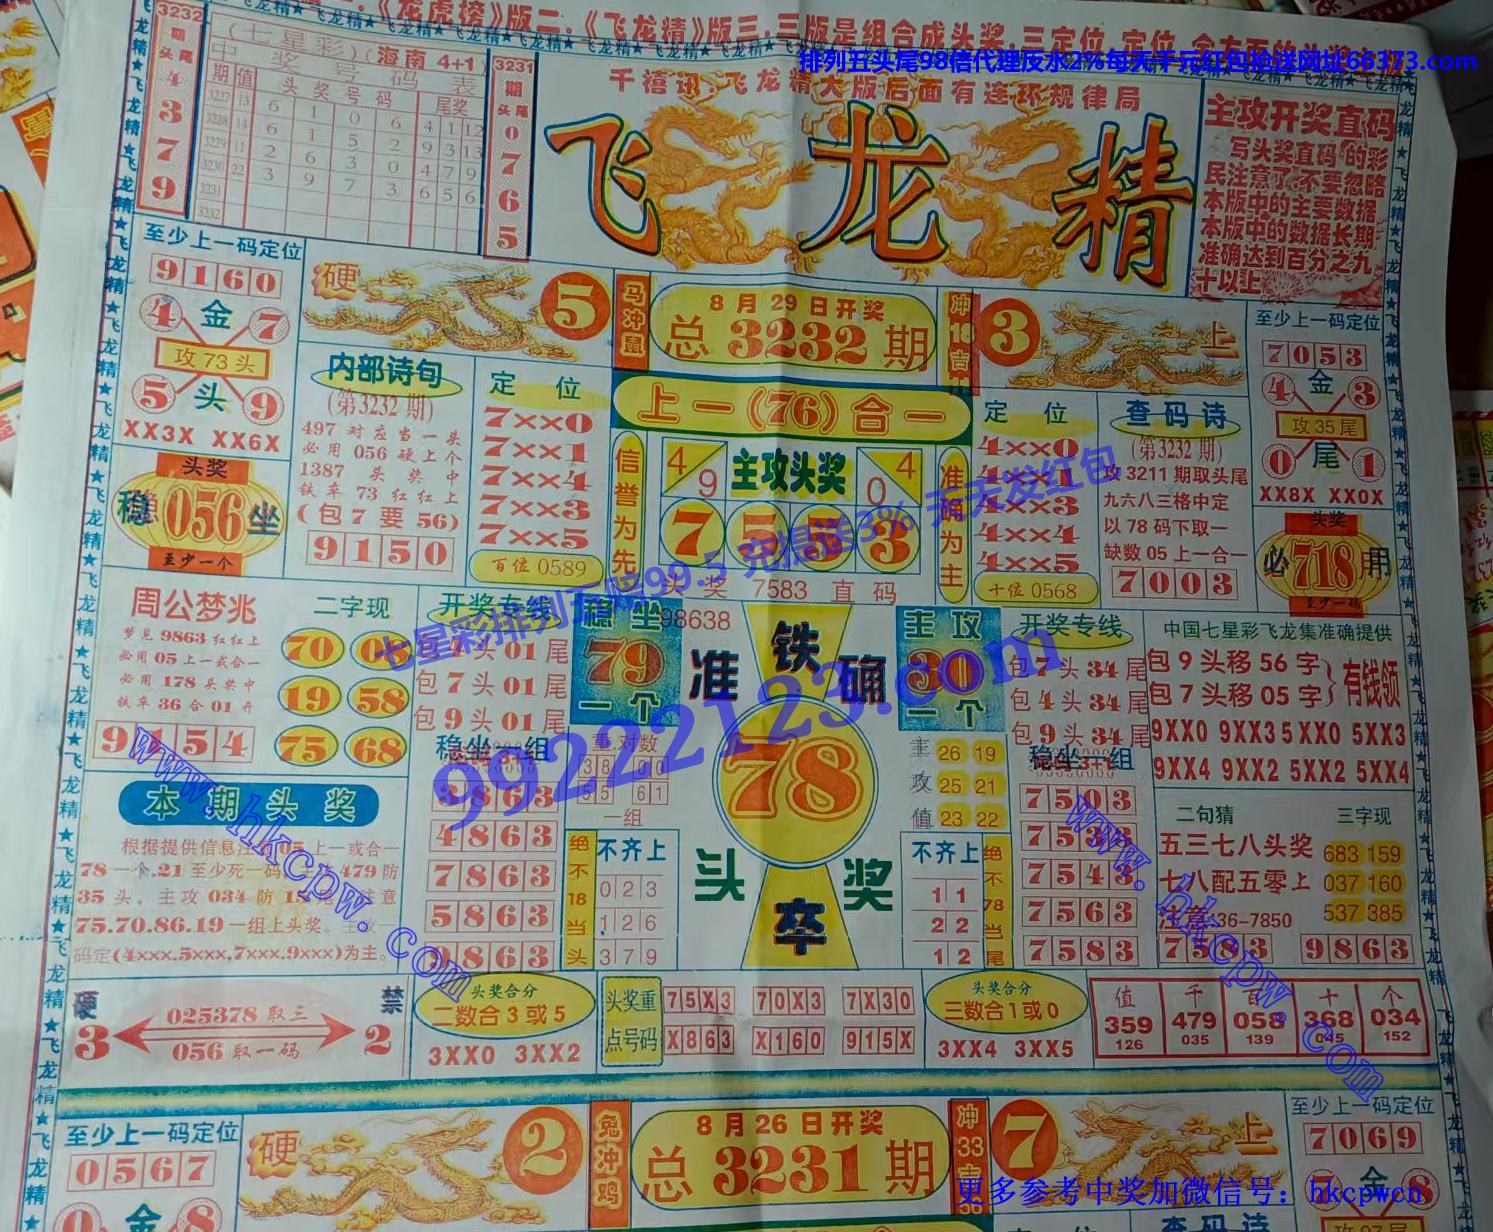 《龙虎榜》版二.《飞龙精》版三.三版是组合成头奖.三定位.定位
排列五头尾98倍代理反水2%每天千元红包抢送网址66373.com
3232
期
头
尾
4
3
7
9
(七星彩)(海南 4+1)
中奖号码表
期 值 头奖号码 尾奖
3227 13 6 1 0 6 4 1 12
3228 14 6 1 5 2 9 3 13
3229 11 2 6 3 0 4 7 9
3230 22 3 9 7 3 6 5 6
3231
3232
3231
期
头
尾
0
7
6
5
千禧讯.飞龙精大版后面有连环规律局
飞龙精
主攻开奖直码
写头奖直码的彩
民注意了.不要忽略
本版中的主要数据
本版中的数据长期
准确达到百分之九
十以上
至少上一码定位
9160
4 金 7
攻 73 头
5 头 9
XX3X XX6X
头奖
稳 056 坐
至少一个
硬 5
马冲鼠
8月29日开奖
总 3232 期
3 上
至少上一码定位
7053
4 金 3
攻 35 尾
0 尾 1
XX8X XX0X
头奖
必 718 用
至少一码
内部诗句
(第3232期)
497 对应当一头
必用 056 硬上个
1387 头奖中
铁车 73 红红上
(包 7 要 56)
9150
定位
7××0
7××1
7××4
7××3
7××5
百位 0589
上一(76)合一
信誉为先
4 9
主攻头奖
0 4
7583
头奖 7583 直码
准确为主
定位
4××0
4××1
4××3
4××4
4××5
十位 0568
查码诗
(第3232期)
攻 3211 期取头尾
九六八三格中定
以 78 码下取一
缺数 05 上一合一
7003
周公梦兆
梦见 9863 红红上
必用 05 上一或合一
必用 178 头奖中
铁车 36 合 01 开
9154
二字现
70
19 58
75 68
开奖专线
包 7 头 01 尾
包 9 头 01 尾
稳坐
79
一个
98638
准 铁 确
78
头 卒 奖
主攻
30
一个
开奖专线
包 7 头 34 尾
包 4 头 34 尾
包 9 头 34 尾
中国七星彩飞龙集准确提供
包 9 头移 56 字
包 7 头移 05 字
有钱领
9XX0 9XX3 5XX0 5XX3
9XX4 9XX2 5XX2 5XX4
稳坐 组
3863
4863
7863
5863
9863
重.对数
一组
主 26 19
攻 25 21
值 23 22
稳坐 组
7503
7533
7543
7563
7583
绝不18当头
不齐上
023
126
379
不齐上
11
22
12
绝不78当尾
本期头奖
78一个.21至少死一码
35 头, 主攻 034 防
75.70.86.19一组上头奖。
码定(4×××.5×××,7×××.9×××)为主。
二句猜
五三七八头奖
七八配五零上
注意:36-7850
7583
三字现
683 159
037 160
537 385
9863
硬 3
025378 取三
056 取一码
禁 2
头奖合分
二数合 3 或 5
3XX0 3XX2
头奖重点号码
75X3 70X3 7X30
X863 X160 915X
头奖合分
三数合 1 或 0
3XX4 3XX5
值 千 百 十 个
359 479 058 368 034
126 035 139 045 152
至少上一码定位
0567
金
硬 2
兔冲鸡
8月26日开奖
总 3231 期
冲33吉56
7 上
至少上一码定位
7069
金 8
查码诗
七星彩排列五赔99.5 充值送3% 天天发红包
99222123.com
www.hkcpw.com
www.hkcpw.com
更多参考中奖加微信号：hkcpwcn